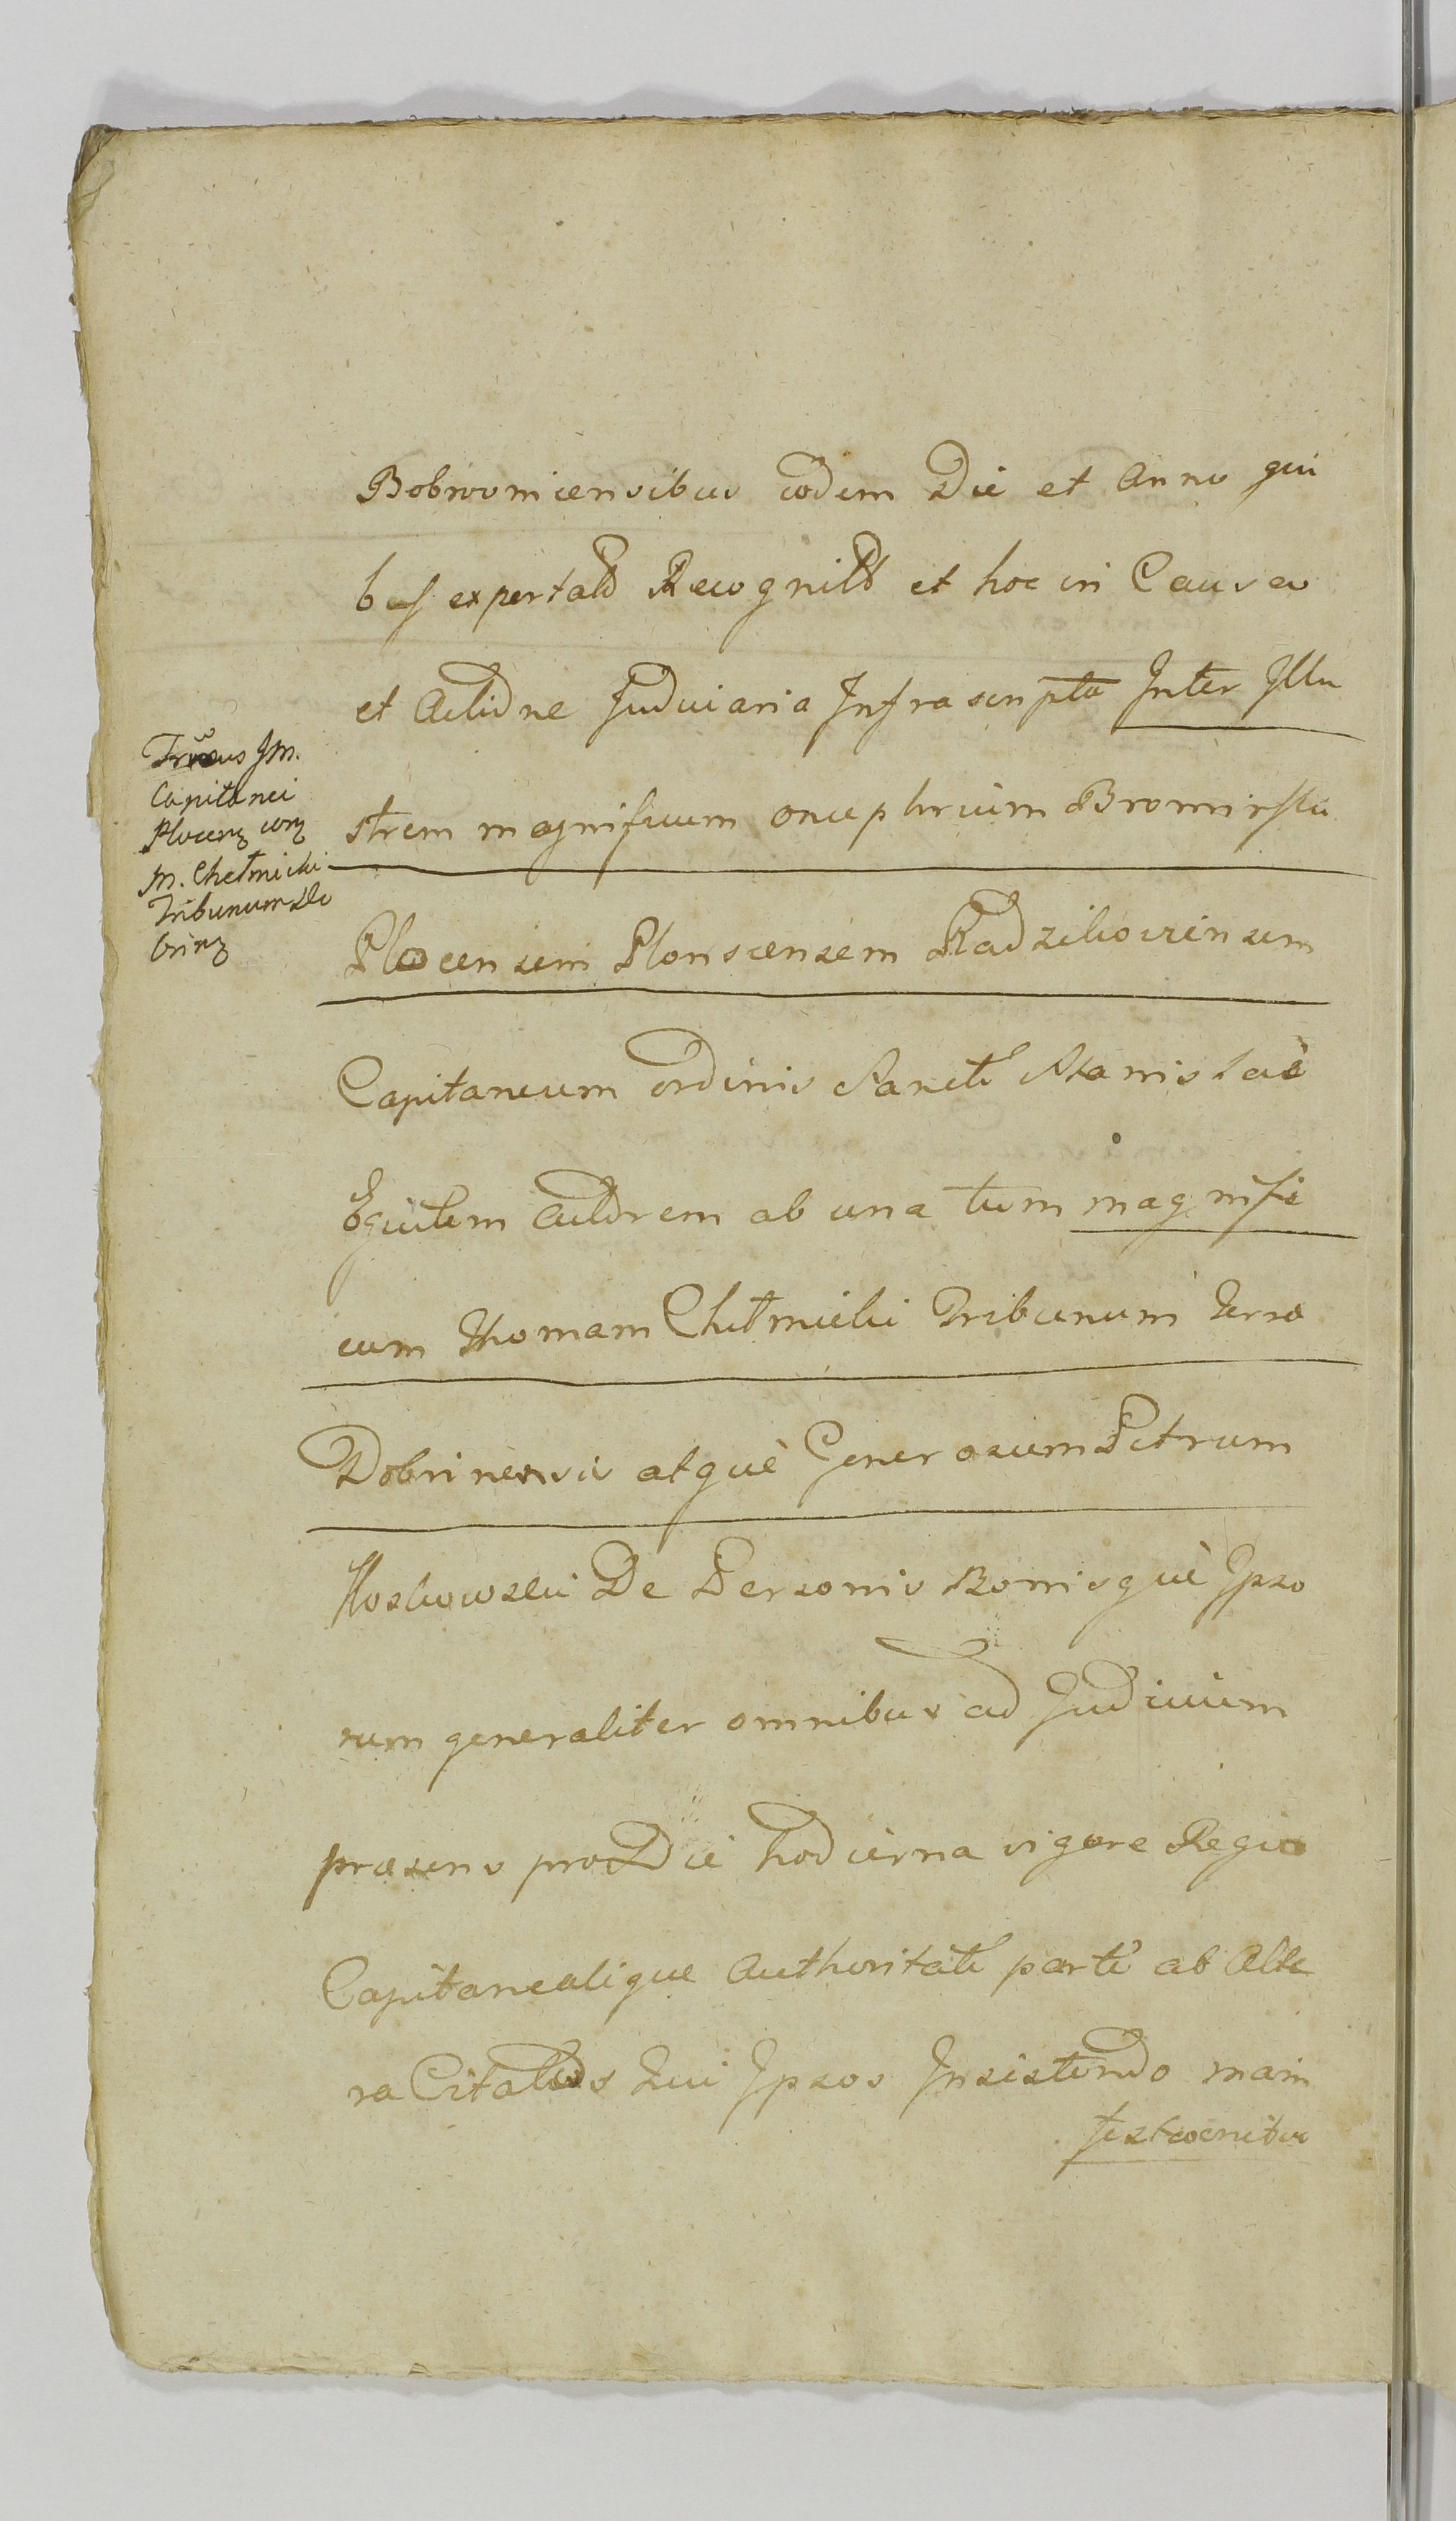 Bobrovnicensibus eodem Die et Anno qui
bus expertato Recognito et hoc in Causa
et Actione Judiciaria Infrascripta Inter Illu
strem magnificum Onuephrium Bromirski
Plocensem Plonscensem Radzilioviensem
Capitaneum ordinis Sancti Stanislai
Equitem Actorem ab una tum magnifi
cum Thomam Chełmicki Tribunum Terrae
Dobrinensis atque Generosum Petrum
Koskowski De Personis Bonisque Ipso
rum generaliter omnibus ad Judicium
praesens pro Die hodierna vigore Regia
Capitanealique Authoritate parte ab Alte
ra Citatos Qui Ipsos Insistendo mani
festo
Jm.
Capitanei
Plocens cons
M. Chełmicki
Tribunum Do
brins